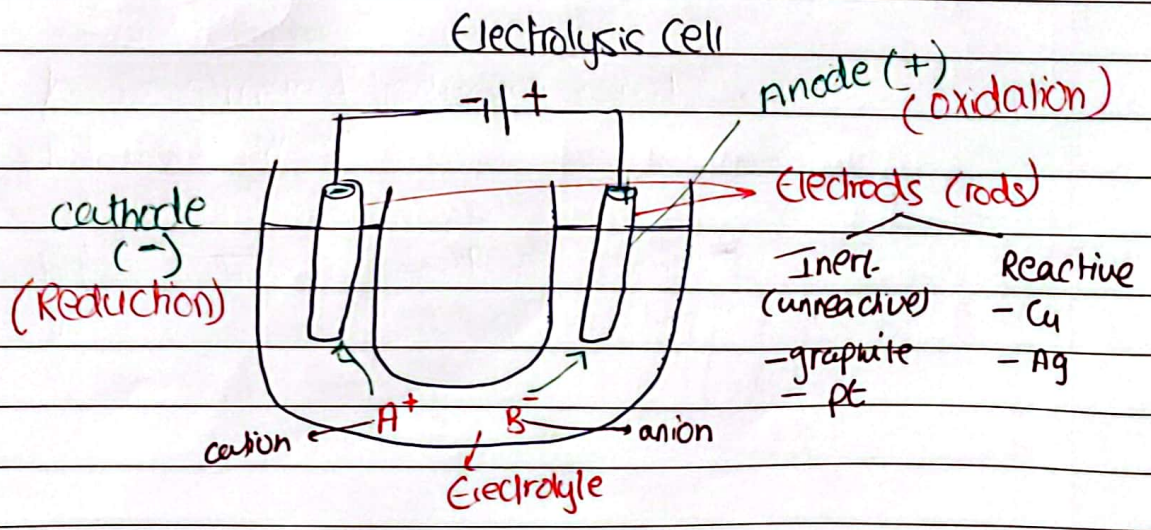 Electrolysis Cell
- +
Anode (+)
(Oxidation)
Cathode
(-)
(Reduction)
Electrods (rods)
Inert
(unreactive)
- graphite
- pt
Reactive
- Cu
- Ag
A+
B-
cation
anion
Electrolyte